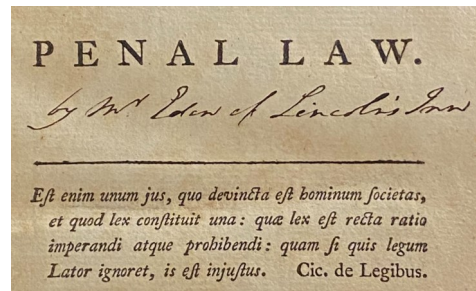 PENAL LAW.
by Mr Eden of Lincoln's Inn
Eſt enim unum jus, quo devincta eſt hominum ſocietas,
et quod lex conſtituit una: quæ lex eſt recta ratio
imperandi atque prohibendi: quam ſi quis legum
Lator ignoret, is eſt injuſtus. Cic. de Legibus.